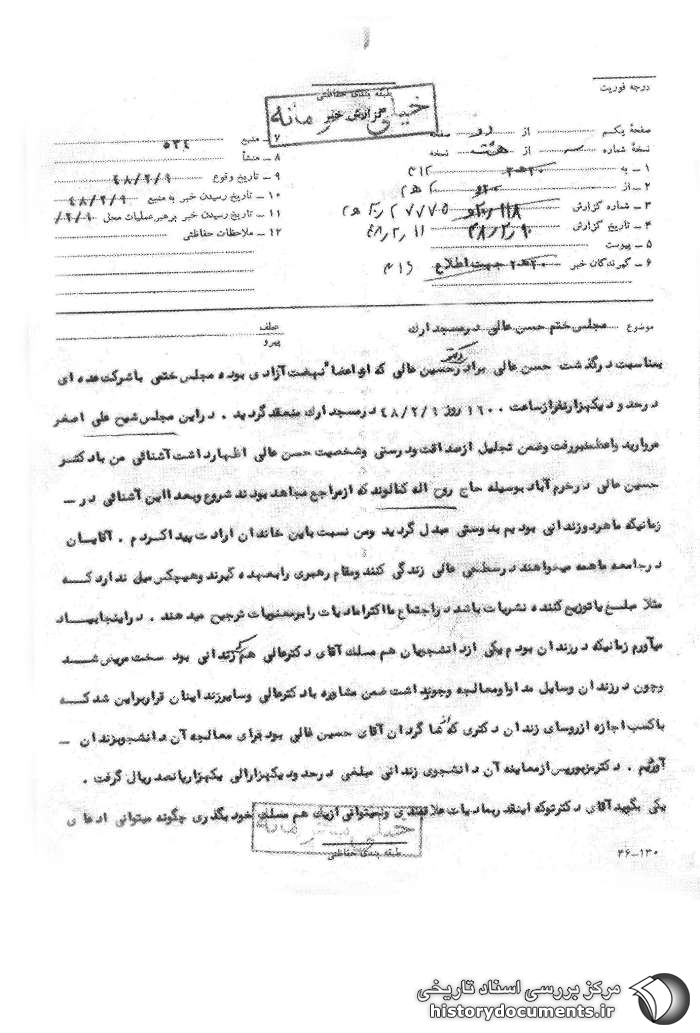 درجه فوریت
طبقه بندی حفاظتی
خیلی محرمانه
گزارش خبر
صفحهٔ یکم از دو صفحه
نسخهٔ شماره از هشت نسخه
۱ ـ به ۲۰ ه‍ ۳ ۳۱۲
۲ ـ از ۲۰ و
۳ ـ شماره گزارش
۴ ـ تاریخ گزارش ۴۸/۲/۱۰ ۴۸/۲/۱۱
۵ ـ پیوست
۶ ـ گیرندگان خبر جهت اطلاع
۷ ـ منبع ۵۳۴
۸ ـ منشأ
۹ ـ تاریخ وقوع ۴۸/۲/۹
۱۰ ـ تاریخ رسیدن خبر به منبع ۴۸/۲/۹
۱۱ ـ تاریخ رسیدن خبر برهبر عملیات محل ۲/۹/
۱۲ ـ ملاحظات حفاظتی
موضوع مجلس ختم حسن عالی در مسجد ارك
عطف
پیرو
بمناسبت درگذشت حسن عالی برادر دکتر حسین عالی که از اعضاء نهضت آزادی بوده مجلس ختمی با شرکت عده ای
در حدود یکهزار نفر از ساعت ۱۶۰۰ روز ۴۸/۲/۹ در مسجد ارك منعقد گردید . در این مجلس شیخ علی اصغر
مروارید واعظ منبر رفت وضمن تجلیل از صداقت ودرستی وشخصیت حسن عالی اظهارداشت آشنائی من بادکتر
حسین عالی در خرم آباد بوسیله حاج روح اله کمالوند که از مراجع مجاهد بودند شروع وبعداًاین آشنائی در ـ
زمانیکه ماهردوزندانی بودیم بدوستی مبدل گردید ومن نسبت باین خاندان ارادت پیدا کردم . آقایان
در جامعه ما همه میخواهند در سطحی عالی زندگی کنند ومقام رهبری را بعهده گیرند وهیچکس میل ندارد که
مثلا مبلغ یا توزیع کننده نشریات باشد در اجتماع ما اکثراً مادیات را بر معنویات ترجیح میدهند . در اینجا بیاد
میآورم زمانیکه در زندان بودم یکی از دانشجویان هم مسلك آقای دکترعالی که زندانی بود سخت مریض شد
وچون در زندان وسایل مداوا ومعالجه وجود نداشت ضمن مشاوره با دکترعالی وسایر زندانیان قرار براین شد که
با کسب اجازه از روسای زندان دکتری که از شاگردان آقای حسین عالی بود برای معالجه آن دانشجو بزندان ـ
آوریم . دکتر مزبور پس از معاینه آن دانشجوی زندانی مبلغی در حدود یکهزار الی یکهزار پانصد ریال گرفت .
یکی بگوید آقای دکتر تو که اینقدر بمادیات علاقمندی ونمیتوانی از یك هم مسلك خود بگذری چگونه میتوانی ادعای
خیلی محرمانه
طبقه بندی حفاظتی
۳۶ــ۱۳۰
مرکز بررسی اسناد تاریخی
historydocuments.ir